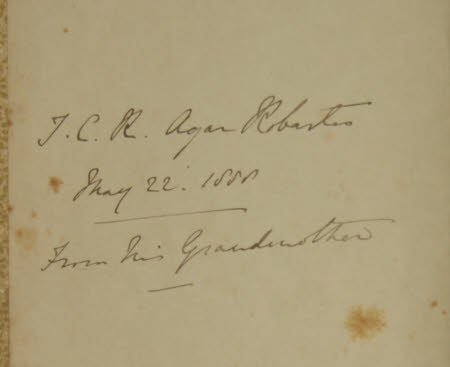 T. C. R. Agar Robartes
May 22. 1888
From his Grandmother